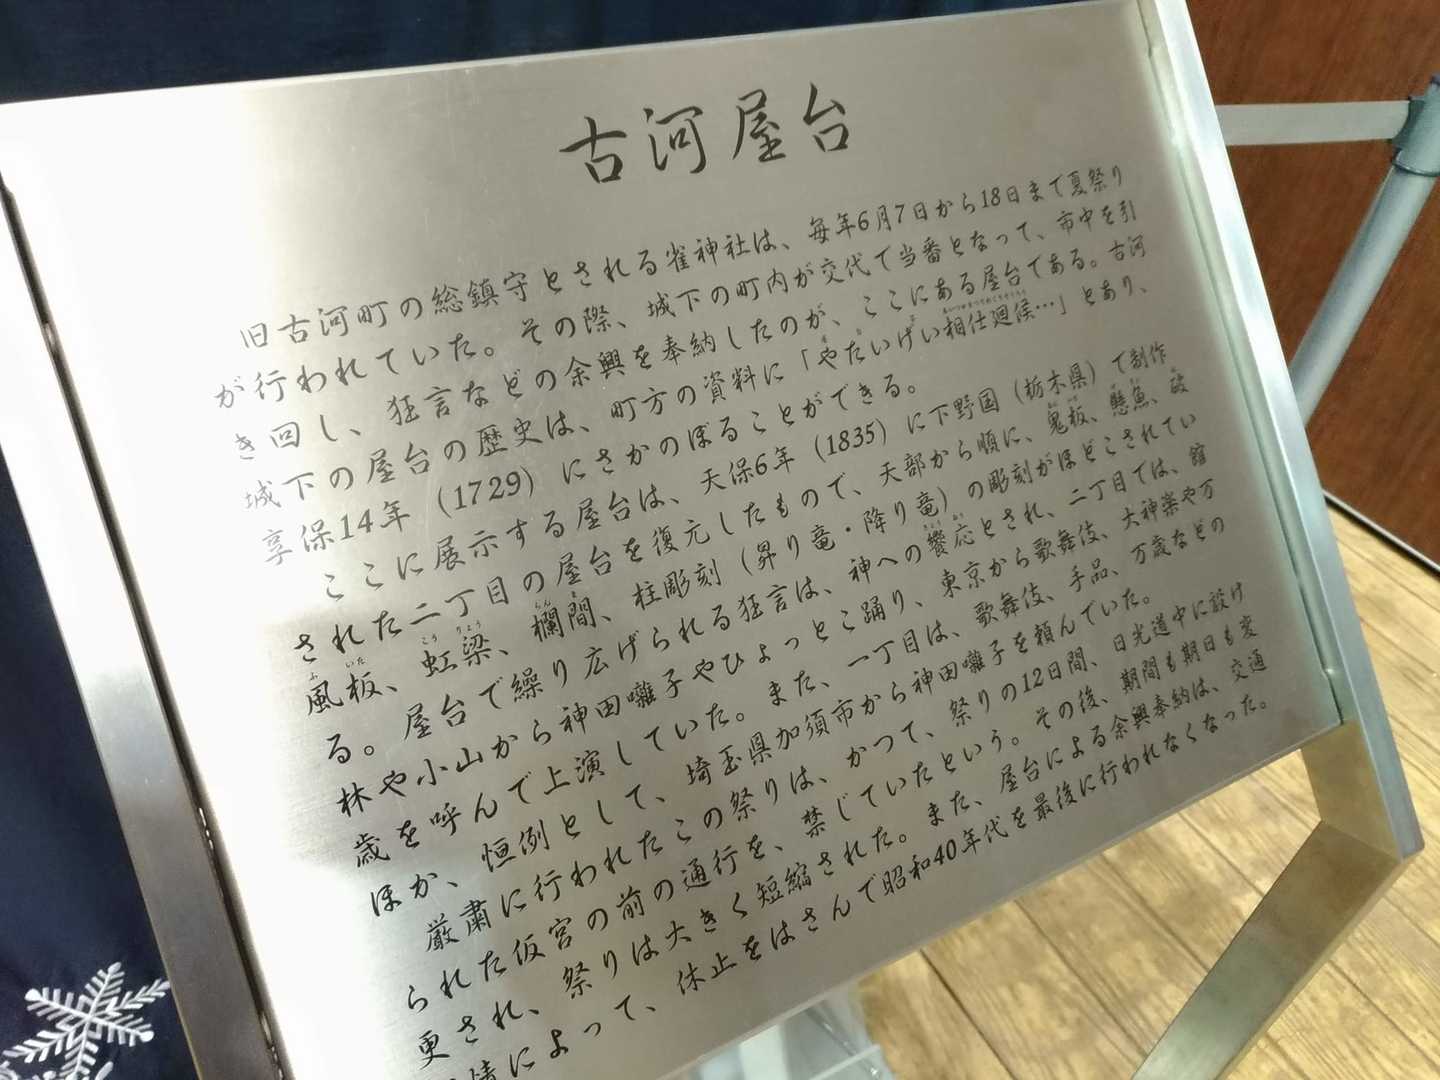 古河屋台
旧古河町の総鎮守とされる雀神社は、毎年6月7日から18日まで夏祭り
が行われていた。その際、城下の町内が交代で当番となって、市中を引
き回し、狂言などの余興を奉納したのが、ここにある屋台である。古河
城下の屋台の歴史は、町方の資料に「やたいげい相仕廻候…」とあり、
享保14年（1729）にさかのぼることができる。
ここに展示する屋台は、天保6年（1835）に下野国（栃木県）で制作
された二丁目の屋台を復元したもので、天部から順に、鬼板、懸魚、破
風板、虹梁、欄間、柱彫刻（昇り竜・降り竜）の彫刻がほどこされてい
る。屋台で繰り広げられる狂言は、神への饗応とされ、二丁目では、舘
林や小山から神田囃子やひょっとこ踊り、東京から歌舞伎、大神楽や万
歳を呼んで上演していた。また、一丁目は、歌舞伎、手品、万歳などの
ほか、恒例として、埼玉県加須市から神田囃子を頼んでいた。
厳粛に行われたこの祭りは、かつて、祭りの12日間、日光道中に設け
られた仮宮の前の通行を、禁じていたという。その後、期間も期日も変
更され、祭りは大きく短縮された。また、屋台による余興奉納は、交通
情によって、休止をはさんで昭和40年代を最後に行われなくなった。